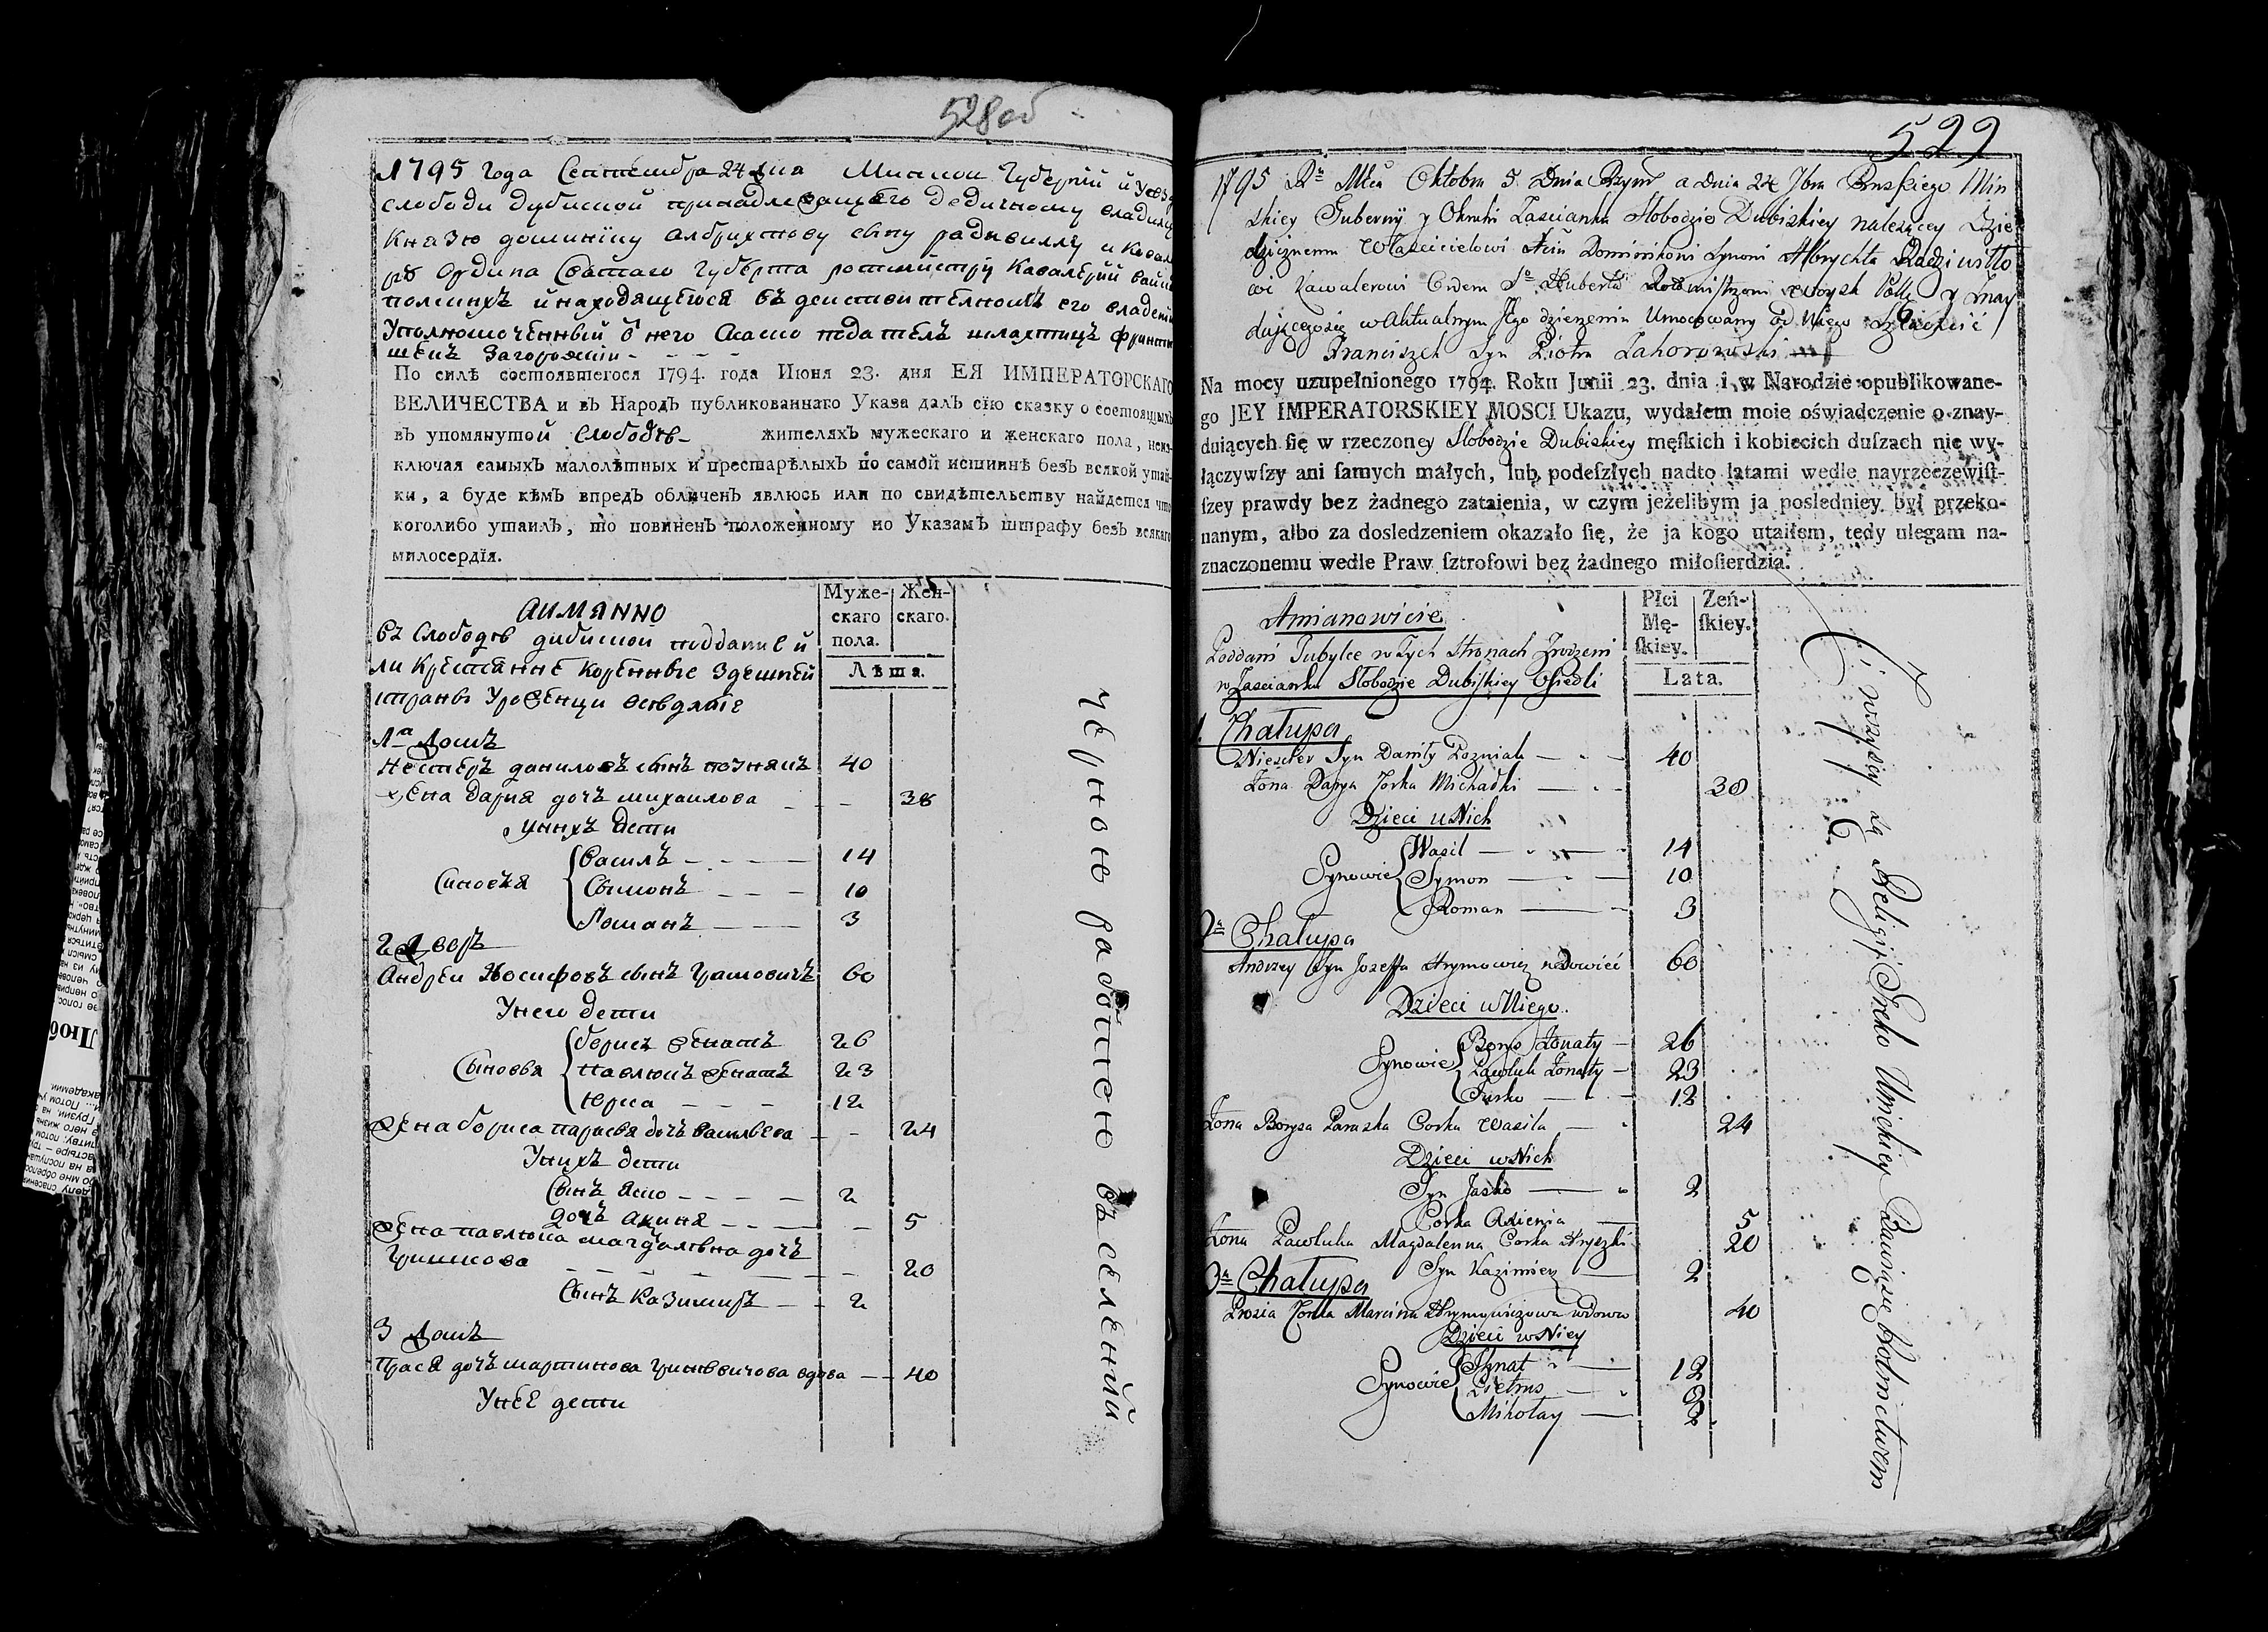 528об
1795 года Сентебра 24 дня Минской Губернїи и уезда
слободи дубиской принадлежащего дедичному владелцу
Князю доминїку албрихтову сыну радивиллу и Кавале
ру Ордина Святаго Губерта ротмистру Кавалерїи войск
полскихъ и находящегося въ деиствителномъ его владенїи
Уполномоченный о него Скаско податель шляхтицъ франти
шекъ Загоровскїи
По силѣ состоявшегося 1794. года Июня 23. дня ЕЯ ИМПЕРАТОРСКАГО
ВЕЛИЧЕСТВА и въ Народъ публикованнаго Указа далъ сїю сказку о состоящихъ
въ упомянутой Слободѣ жителяхъ мужескаго и женскаго пола, неиз-
ключая самыхъ малолѣтныхъ и престарѣлыхъ по самой истиннѣ безъ всякой утай-
ки, а буде кѣмъ впредь обличенъ явлюсь или по свидѣтельству найдется что
коголибо утаилъ, то повиненъ положенному по Указамъ штрафу безъ всякаго
милосердїя.
Муже-скаго пола. Жен-скаго.
Лѣта.
АИМЯННО
въ Слободѣ дибиской поддание и
ли Крестянне Коренные Здешней
страны Уроженци
1а Домъ
Нестеръ даниловъ сынъ познякъ 40
жена дария дочъ михаилова 38
у нихъ дети
Синовья
Василъ 14
Сымонъ 10
Романъ 3
2 Дворъ
Андреи Иосифовъ сынъ Грамовичъ 60
У него дети
Сыновья
борисъ женатъ 26
павлюкъ женатъ 23
юрка 12
жена бориса парасвя дочъ василвева 24
У нихъ дети
Сынъ яско 2
дочъ акциня 5
жена павлюка магдалѣна дочъ
Гришкова 20
Сынъ Казимиръ 2
3 Домъ
Прася дочъ мартинова Гриневичова вдова 40
У нее дети
чорною работною въ селенїй
529
1795 Rᵘ Mca Oktobra 5 Dnia Rzym a Dnia 24 7bra Ruskiego Miń
skiey Gubernij y Okruhi Zascianku Słobodzie Dubiskiey należącey Dzie
dzicznemu Właścicielowi Xciu Dominikowi Synowi Albrychta Radziwiłło
wi Kawalerowi Ordem Sᵒ Huberta Rotmistrzowi Woysk Polł y znay
dującegosię w Aktualnym Jego dzierzeniu Umocowany od Niego Szlachcic
Franciszek Syn Piotra Zahorowski
Na mocy uzupełnionego 1794. Roku Junii 23. dnia i w Narodzie opublikowane-
go JEY IMPERATORSKIEY MOSCI Ukazu, wydałem moie oświadczenie o znay-
duiących ſię w rzeczoney Słobodzie Dubiskiey męſkich i kobiecich duſzach nie wy-
łączywſzy ani ſamych małych, lub podeſzłych nadto latami wedle nayrzeczewiſt-
ſzey prawdy bez żadnego zataienia, w czym jeżelibym ja posledniey był przeko-
nanym, albo za dosledzeniem okazało ſię, że ja kogo utaiłem, tedy ulegam na-
znaczonemu wedle Praw ſztrofowi bez żadnego miłoſierdzia.
Płci Mę-ſkiey. Zeń-ſkiey.
Lata.
Amianowicie
Poddani Tubylce w Tych Stronach Zrodzeni
w Zascianku Słobodzie Dubiskiey Osiedli
1. Chałupa
Niescier Syn Daniły Pozniak 40
Zona Darya Corka Michałki 38
Dzieci u Nich
Synowie
Wasil 14
Symon 10
Roman 3
2ᵃ Chałupa
Andrzey Syn Jozeffa Hrymowicz wdowiec 60
Dzieci u Niego
Synowie
Borys Zonaty 26
Pawluk Zonaty 23
Jurko 12
Zona Borysa Paraska Corka Wasila 24
Dzieci u Nich
Syn Jasko 2
Corka Axienia 5
Zona Pawluka Magdalenna Corka Hryszki 20
Syn Kazimierz 2
3ᵃ Chałupa
Prosia Corka Marcina Hrymowiczowa wdowa 40
Dzieci u Niey
Synowie
Ihnat 12
Pietrus 8
Mikołay 2
Ci wszyscy są Religij Grzeko Unickiey Bawiąsię Rolnictwem